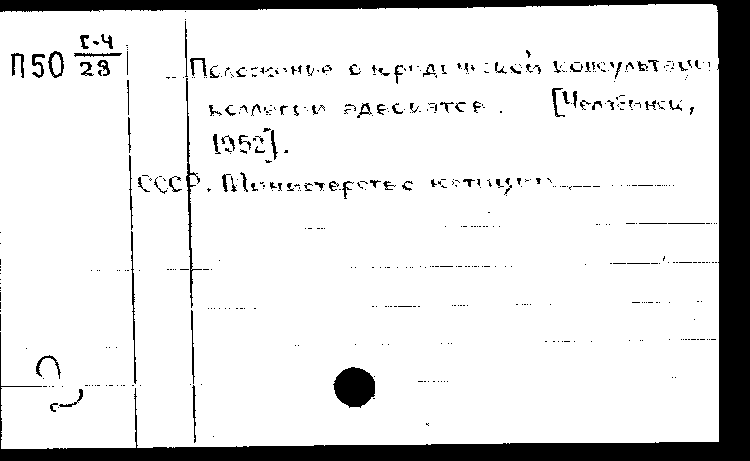 П50 I-4/28
Положение о юридической консультации
коллегии адвокатов. [Челябинск,
1952].
СССР. Министерство юстиции